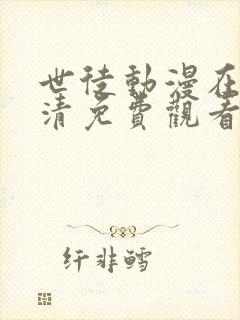 世徒動漫在
清免費觀看
纤非鳕